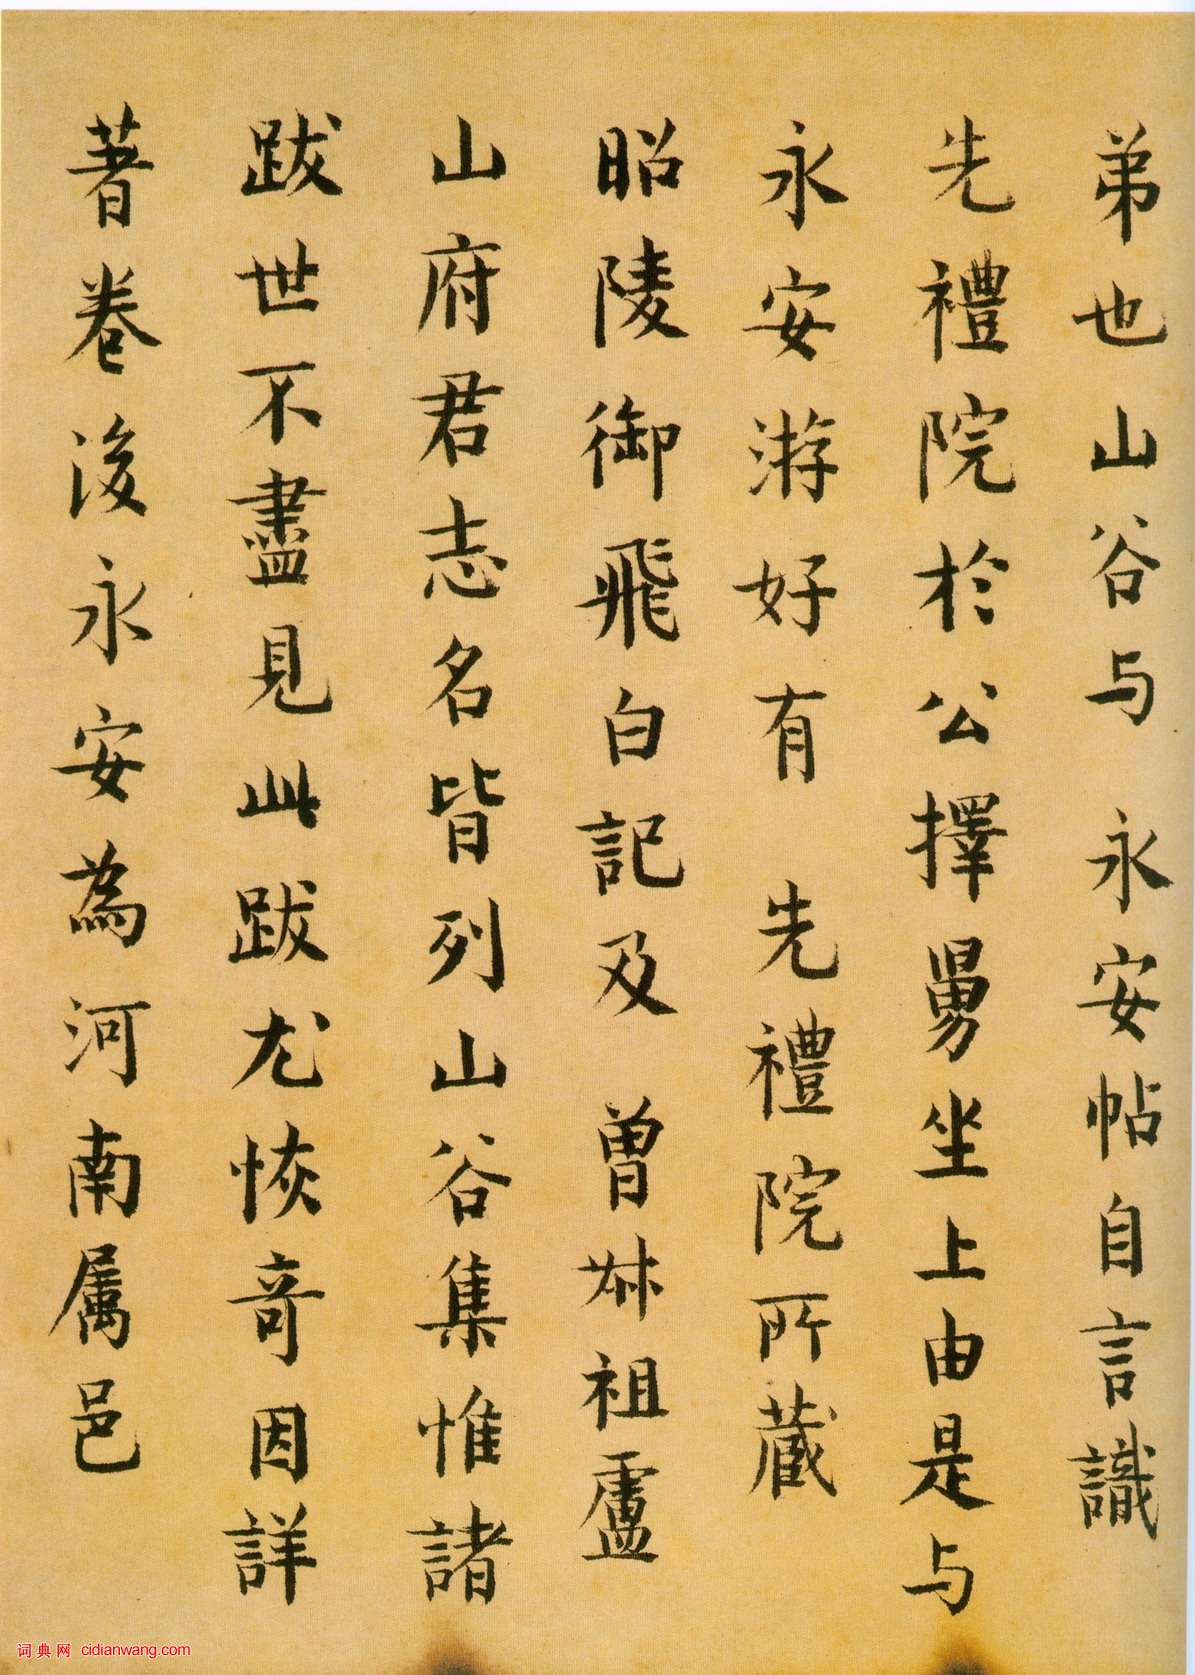 弟也山谷与 永安帖自言識
先禮院於公擇舅坐上由是与
永安游好有 先禮院所藏
昭陵御飛白記及 曾叔祖盧
山府君志名皆列山谷集惟諸
跋世不盡見此跋尤恢奇因詳
著卷後永安為河南属邑
词典网 cidianwang.com